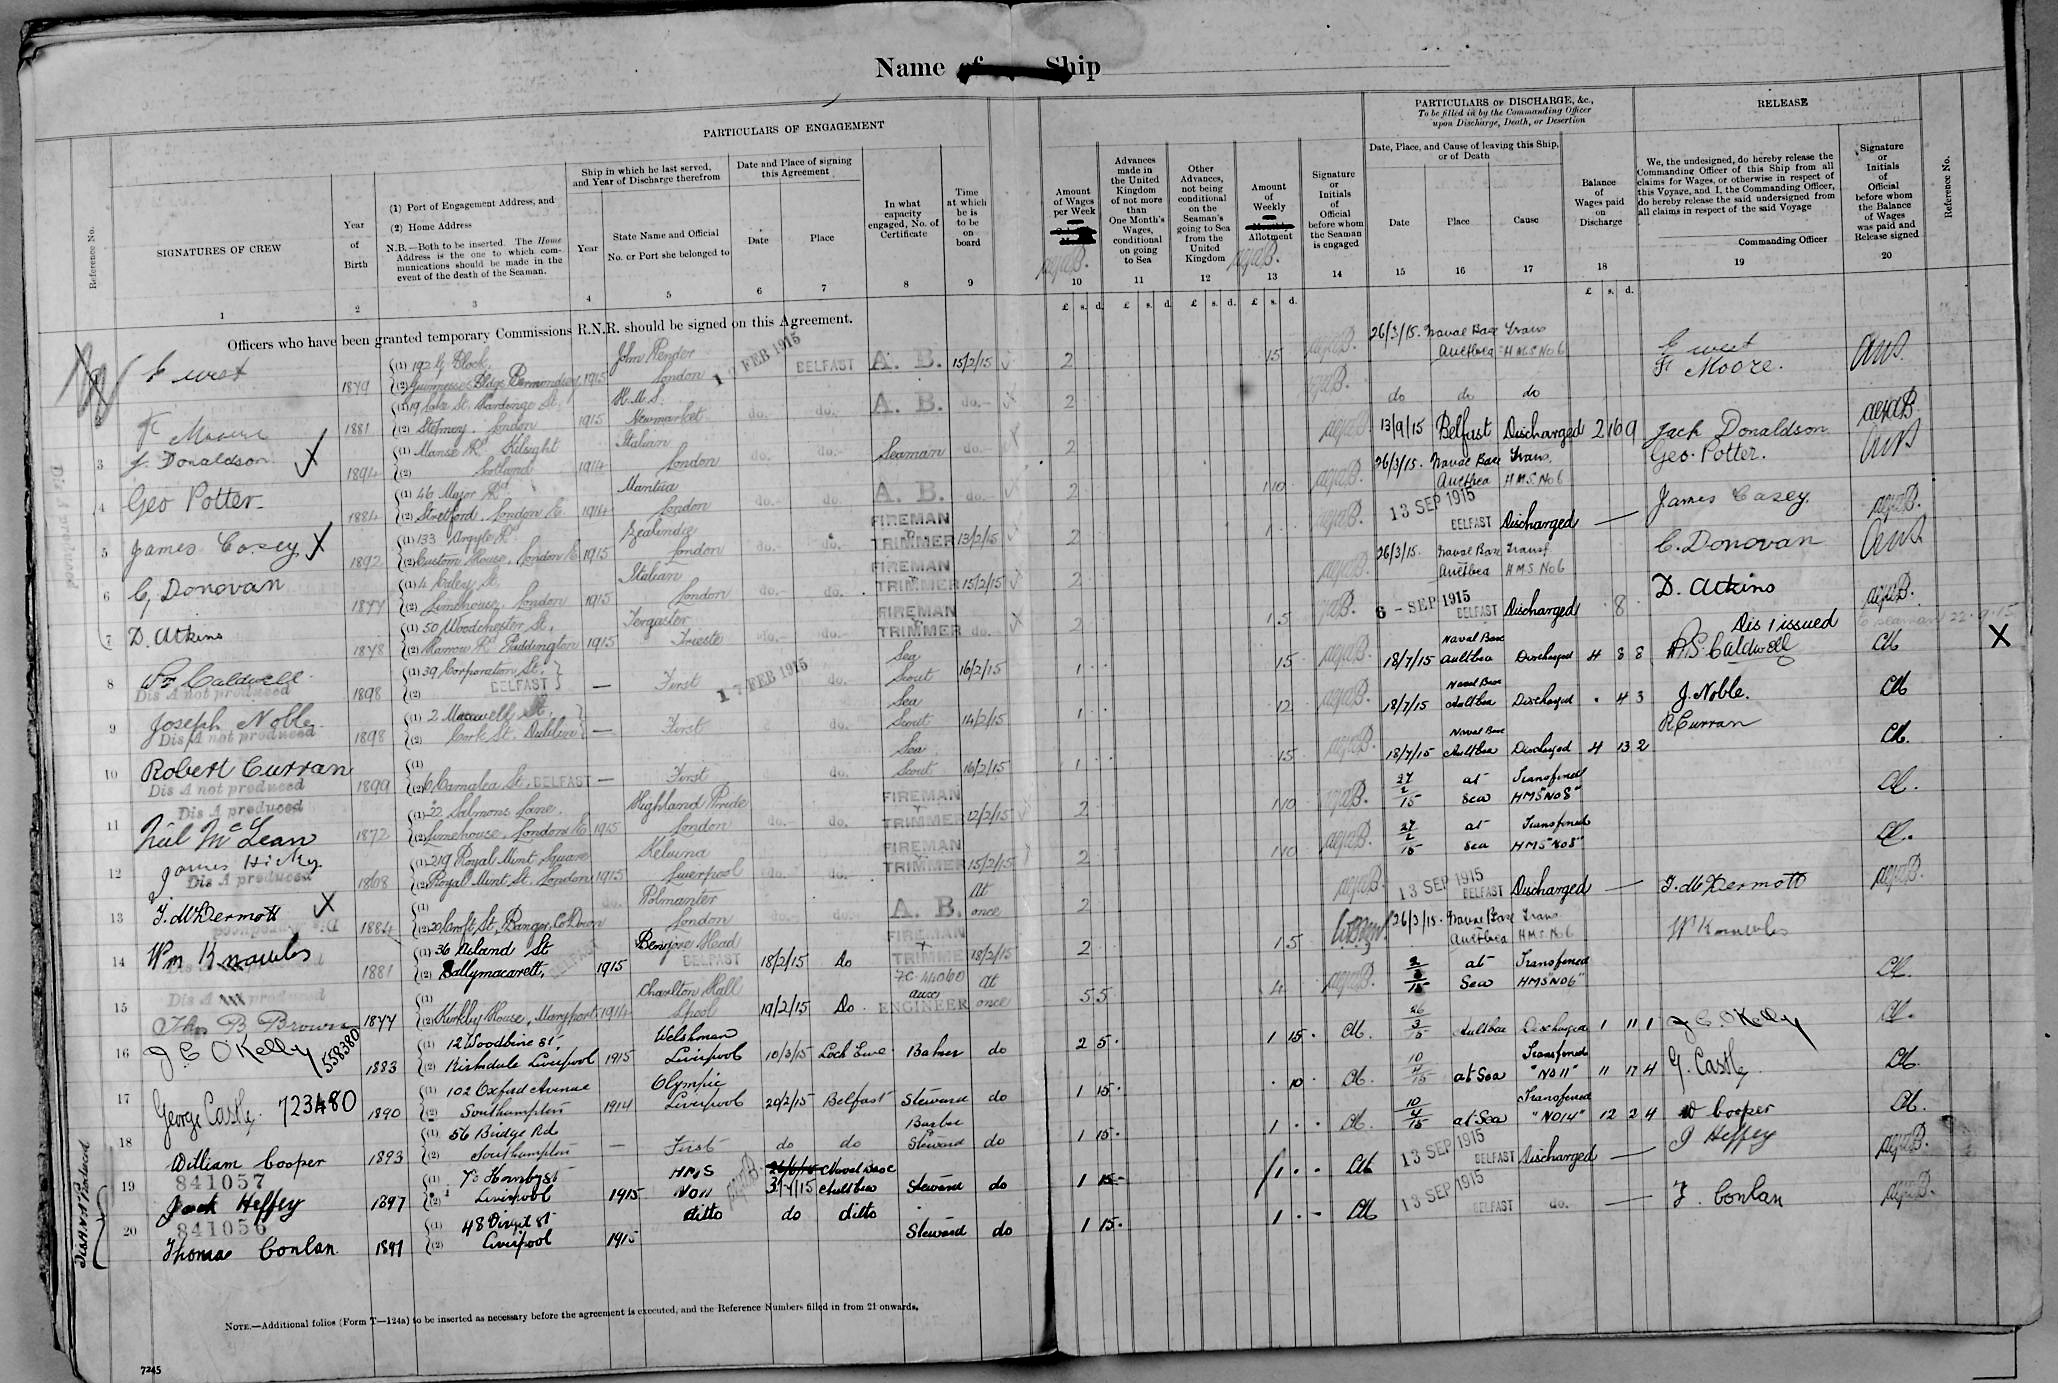 Name of Ship
PARTICULARS OF ENGAGEMENT
PARTICULARS OF DISCHARGE, &c.,
To be filled in by the Commanding Officer
upon Discharge, Death, or Desertion
RELEASE
Reference No.
SIGNATURES OF CREW
1
Year
of
Birth
2
(1) Port of Engagement Address, and
(2) Home Address
N.B.—Both to be inserted. The Home
Address is the one to which com-
munications should be made in the
event of the death of the Seaman.
3
Ship in which he last served,
and Year of Discharge therefrom
Year
4
State Name and Official
No. or Port she belonged to
5
Date and Place of signing
this Agreement
Date
6
Place
7
In what
capacity
engaged, No. of
Certificate
8
Time
at which
he is
to be
on
board
9
Amount
of Wages
per Week
10
Advances
made in
the United
Kingdom
of not more
than
One Month's
Wages,
conditional
on going
to Sea
11
Other
Advances,
not being
conditional
on the
Seaman's
going to Sea
from the
United
Kingdom
12
Amount
of
Weekly
Allotment
13
Signature
or
Initials
of
Official
before whom
the Seaman
is engaged
14
Date, Place, and Cause of leaving this Ship,
or of Death
Date
15
Place
16
Cause
17
Balance
of
Wages paid
on
Discharge
18
We, the undesigned, do hereby release the
Commanding Officer of this Ship from all
claims for Wages, or otherwise in respect of
this Voyage, and I, the Commanding Officer,
do hereby release the said undersigned from
all claims in respect of the said Voyage
Commanding Officer
19
Signature
or
Initials
of
Official
before whom
the Balance
of Wages
was paid and
Release signed
20
Reference No.
£ s. d. £ s. d. £ s. d. £ s. d. £ s. d.
Officers who have been granted temporary Commissions R.N.R. should be signed on this Agreement.
West 1879 (1) 192 G Block (2) Guinnesses Bldgs Bermondsey 1915 John Pender London 17 FEB 1915 BELFAST A. B. 15/2/15 2 15 26/3/15 Naval Base Aultbea Trans HMS No 6 West
F Moore 1881 (2) Stepney London 1915 H.M.S. Newmarket do. do. A. B. do. 2 do do do F Moore.
3 J. Donaldson X 1894 (1) Manse Rd Kilsyth (2) Scotland 1914 Italian London do. do. Seaman do. 2 13/9/15 Belfast Discharged 2 16 9 Jack Donaldson
4 Geo Potter 1884 (1) 46 Major Rd (2) Stratford. London E. 1914 Mantua London do. do. A. B. do. 2 1 10 26/3/15. Naval Base Aultbea Trans. HMS No 6 Geo. Potter.
5 James Casey X 1892 (1) 133 Argyle Rd (2) Custom House, London E. 1915 Zealandic London do. do. FIREMAN TRIMMER 13/2/15 2 1 13 SEP 1915 BELFAST Discharged James Casey
6 C, Donovan 1877 (2) Limehouse, London 1915 Italian London do. do. FIREMAN TRIMMER 15/2/15 2 26/3/15. Naval Base Aultbea Transf. HMS No 6 C. Donovan
7 D. Atkins 1878 (1) 50 Woodchester St, (2) Harrow Rd Paddington 1915 Tergaster Trieste do. do. FIREMAN TRIMMER do. 2 15 6 - SEP 1915 BELFAST Discharged 8 D. Atkins
Dis 1 issued
8 Caldwell 1898 (1) 39 Corporation St. (2) BELFAST — First 17 FEB 1915 do. Sea Scout 16/2/15 1 15 18/7/15 Naval Base Aultbea Discharged 4 8 8 Caldwell X
Dis A not produced
9 Joseph Noble 1898 (1) 2 Maxwell St. (2) Cork St. Dublin — First do. Sea Scout 14/2/15 1 12 18/7/15 Naval Base Aultbea Discharged 4 3 J. Noble.
Dis A not produced
10 Robert Curran 1899 (1) (2) 6 Carnalea St. BELFAST — First do. Sea Scout 16/2/15 1 15 18/7/15 Naval Base Aultbea Discharged 4 13 2 R Curran
Dis A not produced
Dis A produced
11 Neil McLean 1872 (1) 22 Salmons Lane, (2) Limehouse, London E 1915 Highland Pride London do. do. FIREMAN TRIMMER 12/2/15 2 1 10 27/2/15 at Sea Transferred HMS "No 8"
12 James Hicky 1868 (1) 219 Royal Mint Square (2) Royal Mint St. London 1915 Kelvina Liverpool do. do. FIREMAN TRIMMER 15/2/15 2 1 10 27/2/15 at Sea Transferred HMS "No 8"
Dis A produced
13 J. McDermott X 1884 (1) (2) 20 Croft St, Bangor, Co Down London do. do. A. B. At once 2 13 SEP 1915 BELFAST Discharged J. McDermott
14 Wm Knowles 1881 (1) 36 Island St (2) Ballymacarett, 1915 Bengore Head BELFAST 18/2/15 Do FIREMAN TRIMMER 18/2/15 2 1 5 26/3/15. Naval Base Aultbea Trans HMS No 6 Wm Knowles
Dis A produced
15 Thos B Brown 1877 (1) (2) Kirkby House, Maryport 1914 Charlton Hall Lpool 19/2/15 Do ENGINEER At once 5 5 4 at Sea Transferred HMS "No 6"
16 J C O'Kelly 558380 1883 (1) 12 Woodbine St. (2) Kirkdale Liverpool 1915 Welshman Liverpool 10/3/15 Loch Ewe Baker do 2 5 1 15 26/3/15 Aultbea Discharged 1 11 1 J C O'Kelly
17 George Castle 723480 1890 (1) 102 Oxford Avenue (2) Southampton 1914 Olympic Liverpool 20/2/15 Belfast Steward do 1 15 10 10/4/15 at Sea Transferred "No 11" 11 17 4 G. Castle
18 William Cooper 1893 (1) 56 Bridge Rd (2) Southampton — First do do Barber Steward do 1 15 1 10/4/15 at Sea Transferred "No 14" 12 2 4 W Cooper
19 841057 Jack Heffey 1897 (1) 73 Hornby St (2) Liverpool 1915 HMS Naval Base Aultbea Steward do 1 15 1 13 SEP 1915 BELFAST Discharged J Heffey
20 841056 Thomas Conlan 1897 (1) 48 Virgil St (2) Liverpool 1915 ditto do ditto Steward do 1 15 1 13 SEP 1915 BELFAST do. T. Conlan
NOTE.—Additional folios (Form T—124a) to be inserted as necessary before the agreement is executed, and the Reference Numbers filled in from 21 onwards.
7245